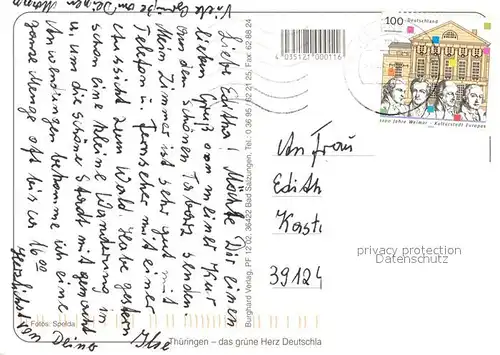 Viele Grüße an Deinen Mann
Liebe Editha! Möchte Dir einen
lieben Gruß von meiner Kur
aus dem schönen Tabarz senden.
Mein Zimmer ist sehr gut mit
Telefon u. Fernseher mit einer
Aussicht zum Wald. Habe gestern
schon eine kleine Wanderung in
u. um die schöne Stadt mit gemacht
Anwendungen bekomme ich eine
ganze Menge oft bis ca 16.00
Herzlichst
Deine Ilse
Fotos: Spelda
Thüringen – das grüne Herz Deutschla
Burghard Verlag, PF 12 02, 36422 Bad Salzungen, Tel.: 0 36 95 / 62 21 25, Fax: 62 88 24
4 035121 000116
100 Deutschland
1100 Jahre Weimar Kulturstadt Europas
An Frau
Edith
Kast
39124
privacy protection
Datenschutz